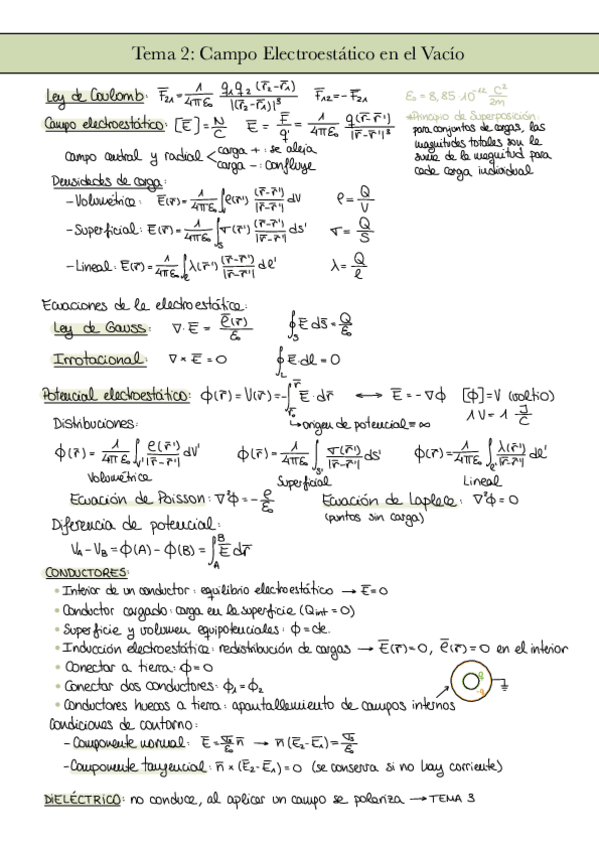 Tema 2: Campo Electroestático en el Vacío
Ley de Coulomb: F̅₂₁ = 1/4πε₀ q₁q₂(r̅₂-r̅₁)/|(r̅₂-r̅₁)|³ F̅₁₂ = -F̅₂₁ ε₀ = 8,85·10⁻¹² C²/2m
Campo electroestático: [E̅] = N/C E̅ = F̅/q' = 1/4πε₀ q(r̅-r̅')/|r̅-r̅'|³
*Principio de Superposición:
para conjuntos de cargas, las
magnitudes totales son la
suma de la magnitud para
cada carga individual
campo central y radial < carga +: se aleja
carga -: confluye
Densidades de carga:
- Volumétrica: E̅(r̅) = 1/4πε₀ ∫ᵥ ρ(r̅') (r̅-r̅')/|r̅-r̅'| dV ρ = Q/V
- Superficial: E̅(r̅) = 1/4πε₀ ∫ₛ σ(r̅') (r̅-r̅')/|r̅-r̅'| ds' σ = Q/S
- Lineal: E̅(r̅) = 1/4πε₀ ∫ λ(r̅') (r̅-r̅')/|r̅-r̅'| dl' λ = Q/l
Ecuaciones de la electroestática:
Ley de Gauss: ∇·E̅ = ρ(r̅)/ε₀ ∮ₛ E̅ ds̅ = Q/ε₀
Irrotacional: ∇×E̅ = 0 ∮_L E̅·dl = 0
Potencial electroestático: ϕ(r̅) = V(r̅) = -∫ E̅·dr̅ ⟷ E̅ = -∇ϕ [ϕ] = V (voltio)
↳ origen de potencial = ∞ 1V = 1 J/C
Distribuciones:
ϕ(r̅) = 1/4πε₀ ∫ ρ(r̅')/|r̅-r̅'| dV' ϕ(r̅) = 1/4πε₀ ∫ σ(r̅')/|r̅-r̅'| ds' ϕ(r̅) = 1/4πε₀ ∫ λ(r̅')/|r̅-r̅'| dl'
Volumétrica Superficial Lineal
Ecuación de Poisson: ∇²ϕ = -ρ/ε₀ Ecuación de Laplace: ∇²ϕ = 0
(puntos sin carga)
Diferencia de potencial:
V_A - V_B = ϕ(A) - ϕ(B) = ∫_A^B E̅ dr̅
CONDUCTORES:
• Interior de un conductor: equilibrio electroestático → E̅ = 0
• Conductor cargado: carga en la superficie (Qint = 0)
• Superficie y volumen equipotenciales: ϕ = cte.
• Inducción electroestática: redistribución de cargas → E̅(r̅) = 0, ρ(r̅) = 0 en el interior
• Conectar a tierra: ϕ = 0
• Conectar dos conductores: ϕ₁ = ϕ₂
• Conductores huecos a tierra: apantallamiento de campos internos
Condiciones de contorno:
- Componente normal: E̅ = σs/ε₀ n̅ → n̅(E̅₂-E̅₁) = σs/ε₀
- Componente tangencial: n̅×(E̅₂-E̅₁) = 0 (se conserva si no hay corriente)
DIELÉCTRICO: no conduce, al aplicar un campo se polariza → TEMA 3